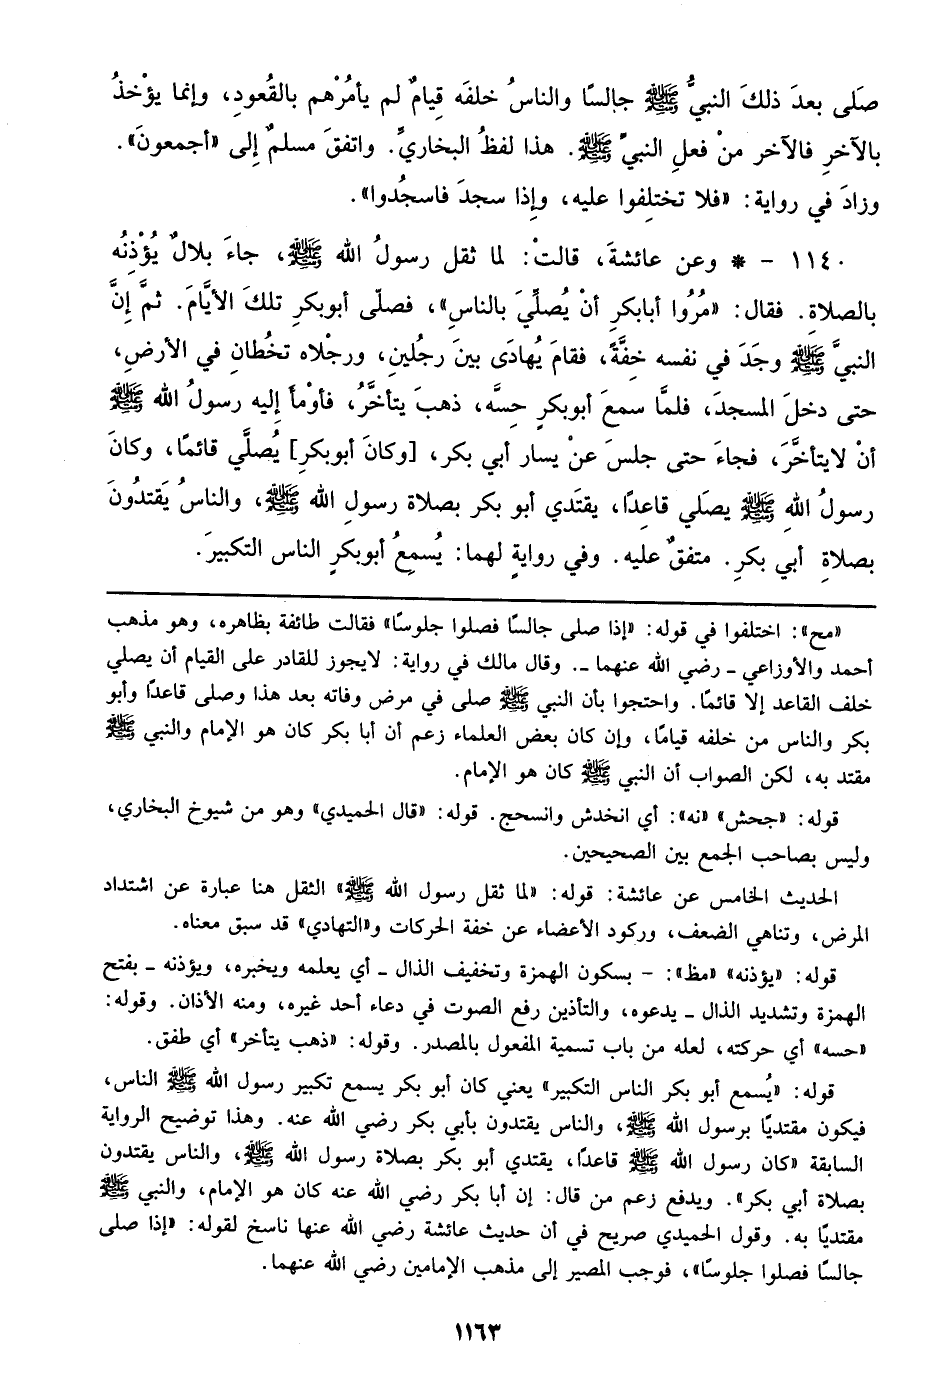 صَلى بعدَ ذلكَ النبيُّ ﷺ جالسًا والناسُ خلفَه قِيامٌ لم يأمُرْهم بالقُعودِ، وإنما يؤْخذُ
بالآخرِ فالآخر منْ فعلِ النبيِّ ﷺ. هذا لفظُ البخاريِّ. واتفقَ مسلمٌ إلى «أجمعونَ».
وزادَ في رواية: «فلا تختلِفوا عليه، وإذا سجدَ فاسجُدوا».
١١٤٠ - * وعن عائشةَ، قالتْ: لما ثقل رسولُ الله ﷺ، جاءَ بلالٌ يُؤْذِنُه
بالصلاةِ. فقال: «مُرُوا أبابكرٍ أنْ يُصلِّيَ بالناسِ»، فصلّى أبوبكرٍ تلكَ الأيَّامَ. ثمَّ إنَّ
النبيَّ ﷺ وجَدَ في نفسه خِفَّةً، فقامَ يُهادَى بينَ رجُلينِ، ورجْلاه تخُطانِ في الأرضِ،
حتى دخلَ المسجدَ، فلمَّا سمعَ أبوبكرٍ حِسَّه، ذهبَ يتأخَّرُ، فأومْأَ إليه رسولُ الله ﷺ
أنْ لايتأخَّرَ، فجاءَ حتى جلسَ عنْ يسار أبي بكر، [وكانَ أبوبكرٍ] يُصلَّي قائمًا، وكانَ
رسولُ اللهِ ﷺ يصلَي قاعِدًا، يقتَدي أبو بكر بصلاة رسولِ الله ﷺ، والناسُ يَقتدُونَ
بصلاةِ أبي بكرِ. متفقٌ عليه. وفي روايةٍ لهما: يُسمِعُ أبوبكرٍ الناس التكبيرَ.
«مح»: اختلفوا في قوله: «إذا صلى جالسًا فصلوا جلوسًا» فقالت طائفة بظاهره، وهو مذهب
أحمد والأوزاعي ـ رضي الله عنهما ـ. وقال مالك في رواية: لايجوز للقادر على القيام أن يصلي
خلف القاعد إلا قائمًا. واحتجوا بأن النبي ﷺ صلى في مرض وفاته بعد هذا وصلى قاعدًا وأبو
بكر والناس من خلفه قيامًا، وإن كان بعض العلماء زعم أن أبا بكر كان هو الإمام والنبي ﷺ
مقتد به، لكن الصواب أن النبي ﷺ كان هو الإمام.
قوله: «جحش» «نه»: أي انخدش وانسحج. قوله: «قال الحميدي» وهو من شيوخ البخاري،
وليس بصاحب الجمع بين الصحيحين.
الحديث الخامس عن عائشة: قوله: «لما ثقل رسول الله ﷺ» الثقل هنا عبارة عن اشتداد
المرض، وتناهي الضعف، وركود الأعضاء عن خفة الحركات و«التهادي» قد سبق معناه.
قوله: «يؤذنه» «مظ»: - بسكون الهمزة وتخفيف الذال ـ أي يعلمه ويخبره، ويؤذنه ـ بفتح
الهمزة وتشديد الذال ـ يدعوه، والتأذين رفع الصوت في دعاء أحد غيره، ومنه الأذان. وقوله:
«حسه» أي حركته، لعله من باب تسمية المفعول بالمصدر. وقوله: «ذهب يتأخر» أي طفق.
قوله: «يُسمع أبو بكر الناس التكبير» يعني كان أبو بكر يسمع تكبير رسول الله ﷺ الناس،
فيكون مقتديًا برسول الله ﷺ، والناس يقتدون بأبي بكر رضي الله عنه. وهذا توضيح الرواية
السابقة «كان رسول الله ﷺ قاعدًا، يقتدي أبو بكر بصلاة رسول الله ﷺ، والناس يقتدون
بصلاة أبي بكر». ويدفع زعم من قال: إن أبا بكر رضي الله عنه كان هو الإمام، والنبي ﷺ
مقتديًا به. وقول الحميدي صريح في أن حديث عائشة رضي الله عنها ناسخ لقوله: «إذا صلى
جالسًا فصلوا جلوسًا»، فوجب المصير إلى مذهب الإمامين رضي الله عنهما.
١١٦٣